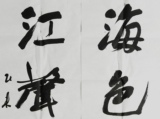 海色
江聲